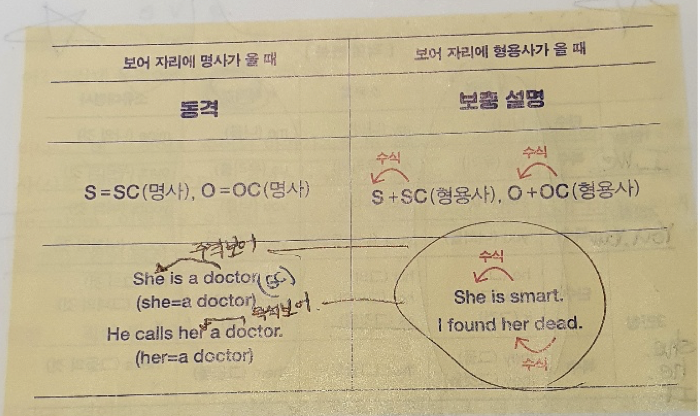 보어 자리에 명사가 올 때
보어 자리에 형용사가 올 때
동격
보충 설명
S=SC(명사), O=OC(명사)
수식
수식
S+SC(형용사), O+OC(형용사)
주격보어
She is a doctor. (SC)
(she=a doctor)
목적보어
He calls her a doctor.
(her=a doctor)
수식
She is smart.
I found her dead.
수식